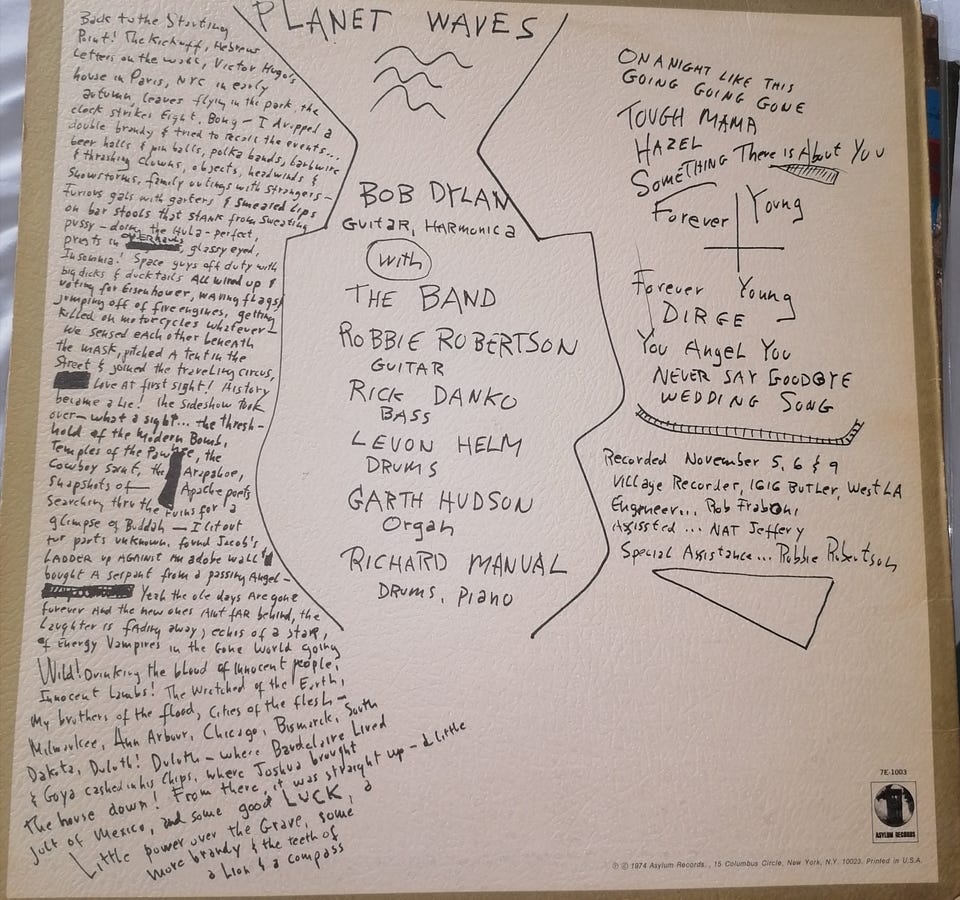 PLANET WAVES
Back to the Starting
Point! The Kickoff, Hebrew
Letters on the wall, Victor Hugo's
house in Paris, NYC in early
autumn, leaves flying in the park, the
clock strikes Eight. Bong — I dropped a
double brandy & tried to recall the events...
beer halls & pin balls, polka bands, barbwire
& thrashing clowns, objects, headwinds &
Snowstorms, family outings with strangers —
Furious gals with garters & smeared Lips
on bar stools that stank from sweating
pussy — doing the Hula — perfect,
priests in OVERHAULS, glassy eyed,
Insomnia! Space guys off duty with
big dicks & ducktails All wired up &
voting for Eisenhower, waving flags &
jumping off of fire engines, getting
killed on motorcycles whatever —
We sensed each other beneath
the mask, pitched A tent in the
Street & joined the traveling circus,
Love at first sight! History
became a Lie! The sideshow took
over — what a sight... the thresh-
hold of the Modern Bomb,
Temples of the Pawnee, the
Cowboy Saint, the Arapahoe,
Snapshots of Apache poets
Searching thru the ruins for a
glimpse of Buddah — I lit out
for parts unknown, found Jacob's
LADDER up AGAINST An adobe wall &
bought A serpant from a passing Angel —
Yeah the ole days Are gone
forever And the new ones Aint fAR behind, the
Laughter is fading away, echos of a star,
of Energy Vampires in the Gone World going
Wild! Drinking the blood of innocent people,
Innocent Lambs! The Wretched of the Earth,
My brothers of the flood, Cities of the flesh —
Milwaukee, Ann Arbour, Chicago, Bismarck, South
Dakota, Duluth! Duluth — where Baudelaire Lived
& Goya cashed in his Chips, where Joshua brought
the house down! From there, it was straight up — a Little
jolt of Mexico, and some good LUCK, a
Little power over the Grave, some
more brandy & the teeth of
a Lion & a compass
BOB DYLAN
GUITAR, HARMONICA
with
THE BAND
ROBBIE ROBERTSON
GUITAR
RICK DANKO
BASS
LEVON HELM
DRUMS
GARTH HUDSON
Organ
RICHARD MANUAL
DRUMS, Piano
ON A NIGHT LIKE THIS
GOING GOING GONE
TOUGH MAMA
HAZEL
SOMETHING There is About You
Forever Young
Forever Young
DIRGE
You Angel You
NEVER SAY GOODBYE
WEDDING SONG
Recorded November 5, 6 & 9
Village Recorder, 1616 BUTLER, West LA
Engineer... Rob Fraboni
Assissted ... NAT Jeffery
Special Assistance... Robbie Robertson
7E-1003
ASYLUM RECORDS
℗ © 1974 Asylum Records, , 15 Columbus Circle, New York, N.Y. 10023. Printed in U.S.A.